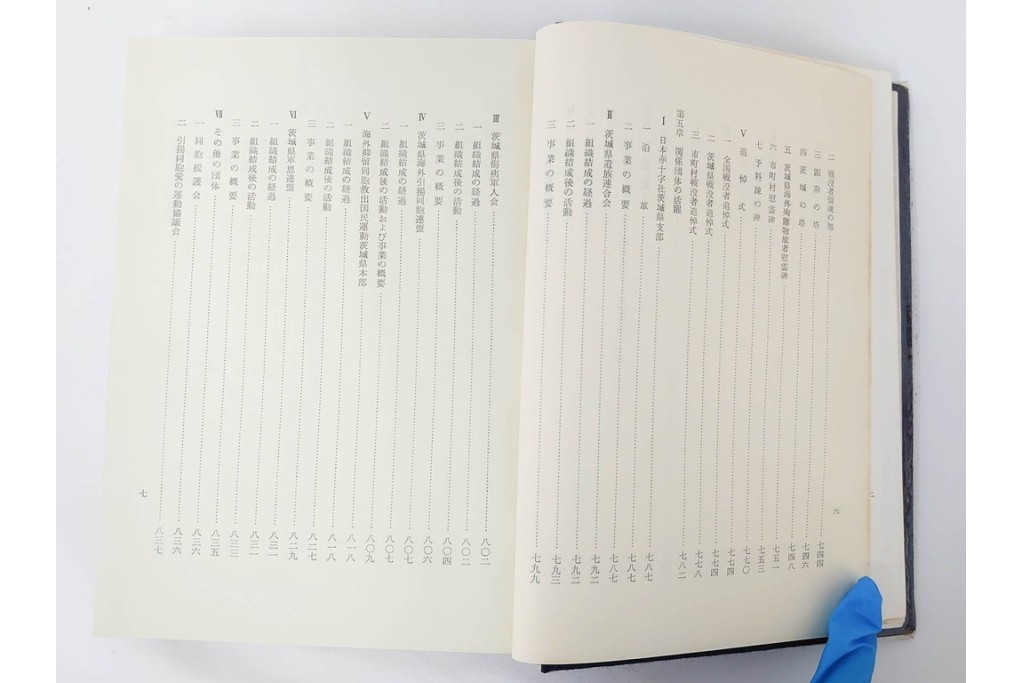 六
二 戦没者留魂の処 七四四
三 顕彰の塔 七四六
四 茨城の塔 七四八
五 茨城県海外殉難物故者慰霊碑 七五一
六 市町村慰霊碑 七五三
七 予科練の碑 七七〇
Ⅴ 追悼式 七七四
一 全国戦没者追悼式 七七四
二 茨城県戦没者追悼式 七七八
三 市町村戦没者追悼式 七八二
第五章 関係団体の活躍
Ⅰ 日本赤十字社茨城県支部 七八七
一 沿革 七八七
二 事業の概要 七八七
Ⅱ 茨城県遺族連合会 七九二
一 組織結成の経過 七九二
二 組織結成後の活動 七九三
三 事業の概要 七九九
Ⅲ 茨城県傷痍軍人会 八〇二
一 組織結成の経過 八〇二
二 組織結成後の活動 八〇四
三 事業の概要 八〇六
Ⅳ 茨城県海外引揚同胞連盟 八〇七
一 組織結成の経過 八〇七
二 組織結成後の活動および事業の概要 八〇九
Ⅴ 海外抑留同胞救出国民運動茨城県本部 八一八
一 組織結成の経過 八一八
二 組織結成後の活動 八二七
三 事業の概要 八二九
Ⅵ 茨城県軍恩連盟 八三一
一 組織結成の経過 八三一
二 組織結成後の活動 八三三
三 事業の概要 八三五
Ⅶ その他の団体 八三六
一 同胞援護会 八三六
二 引揚同胞愛の運動協議会 八三七
七